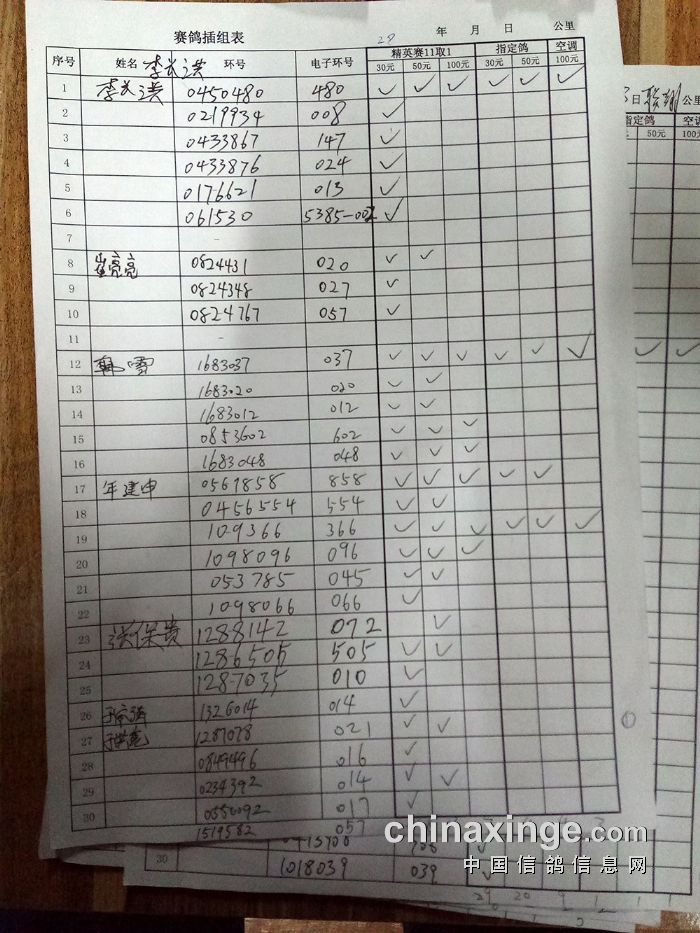 赛鸽插组表
年 月 日 公里
序号 姓名 环号 电子环号 精英赛11取1 指定鸽 空调
30元 50元 100元 30元 50元 100元
1 0450480 480
2 0219934 008
3 0433867 147
4 0433876 024
5 0176621 013
6 061530
7
8 崔亮亮 0824431 020
9 0824348 027
10 0824767 057
11
12 1683037 037
13 1683020 020
14 1683012 012
15 0853602 602
16 1683048 048
17 年建申 858
18 0456554 554
19 109366 366
20 1098096 096
21 053785 045
22 1098066 066
23 张保贵 1288142 072
24 1286505 505
25 1287035 010
26 1326014 014
27 021
28 0849496 016
29 0234392 014
30 017
1519582 057
日 公里
指定鸽 空调
元 50元 100元
30 1018039 039
29 20
chinaxinge.com
中国信鸽信息网